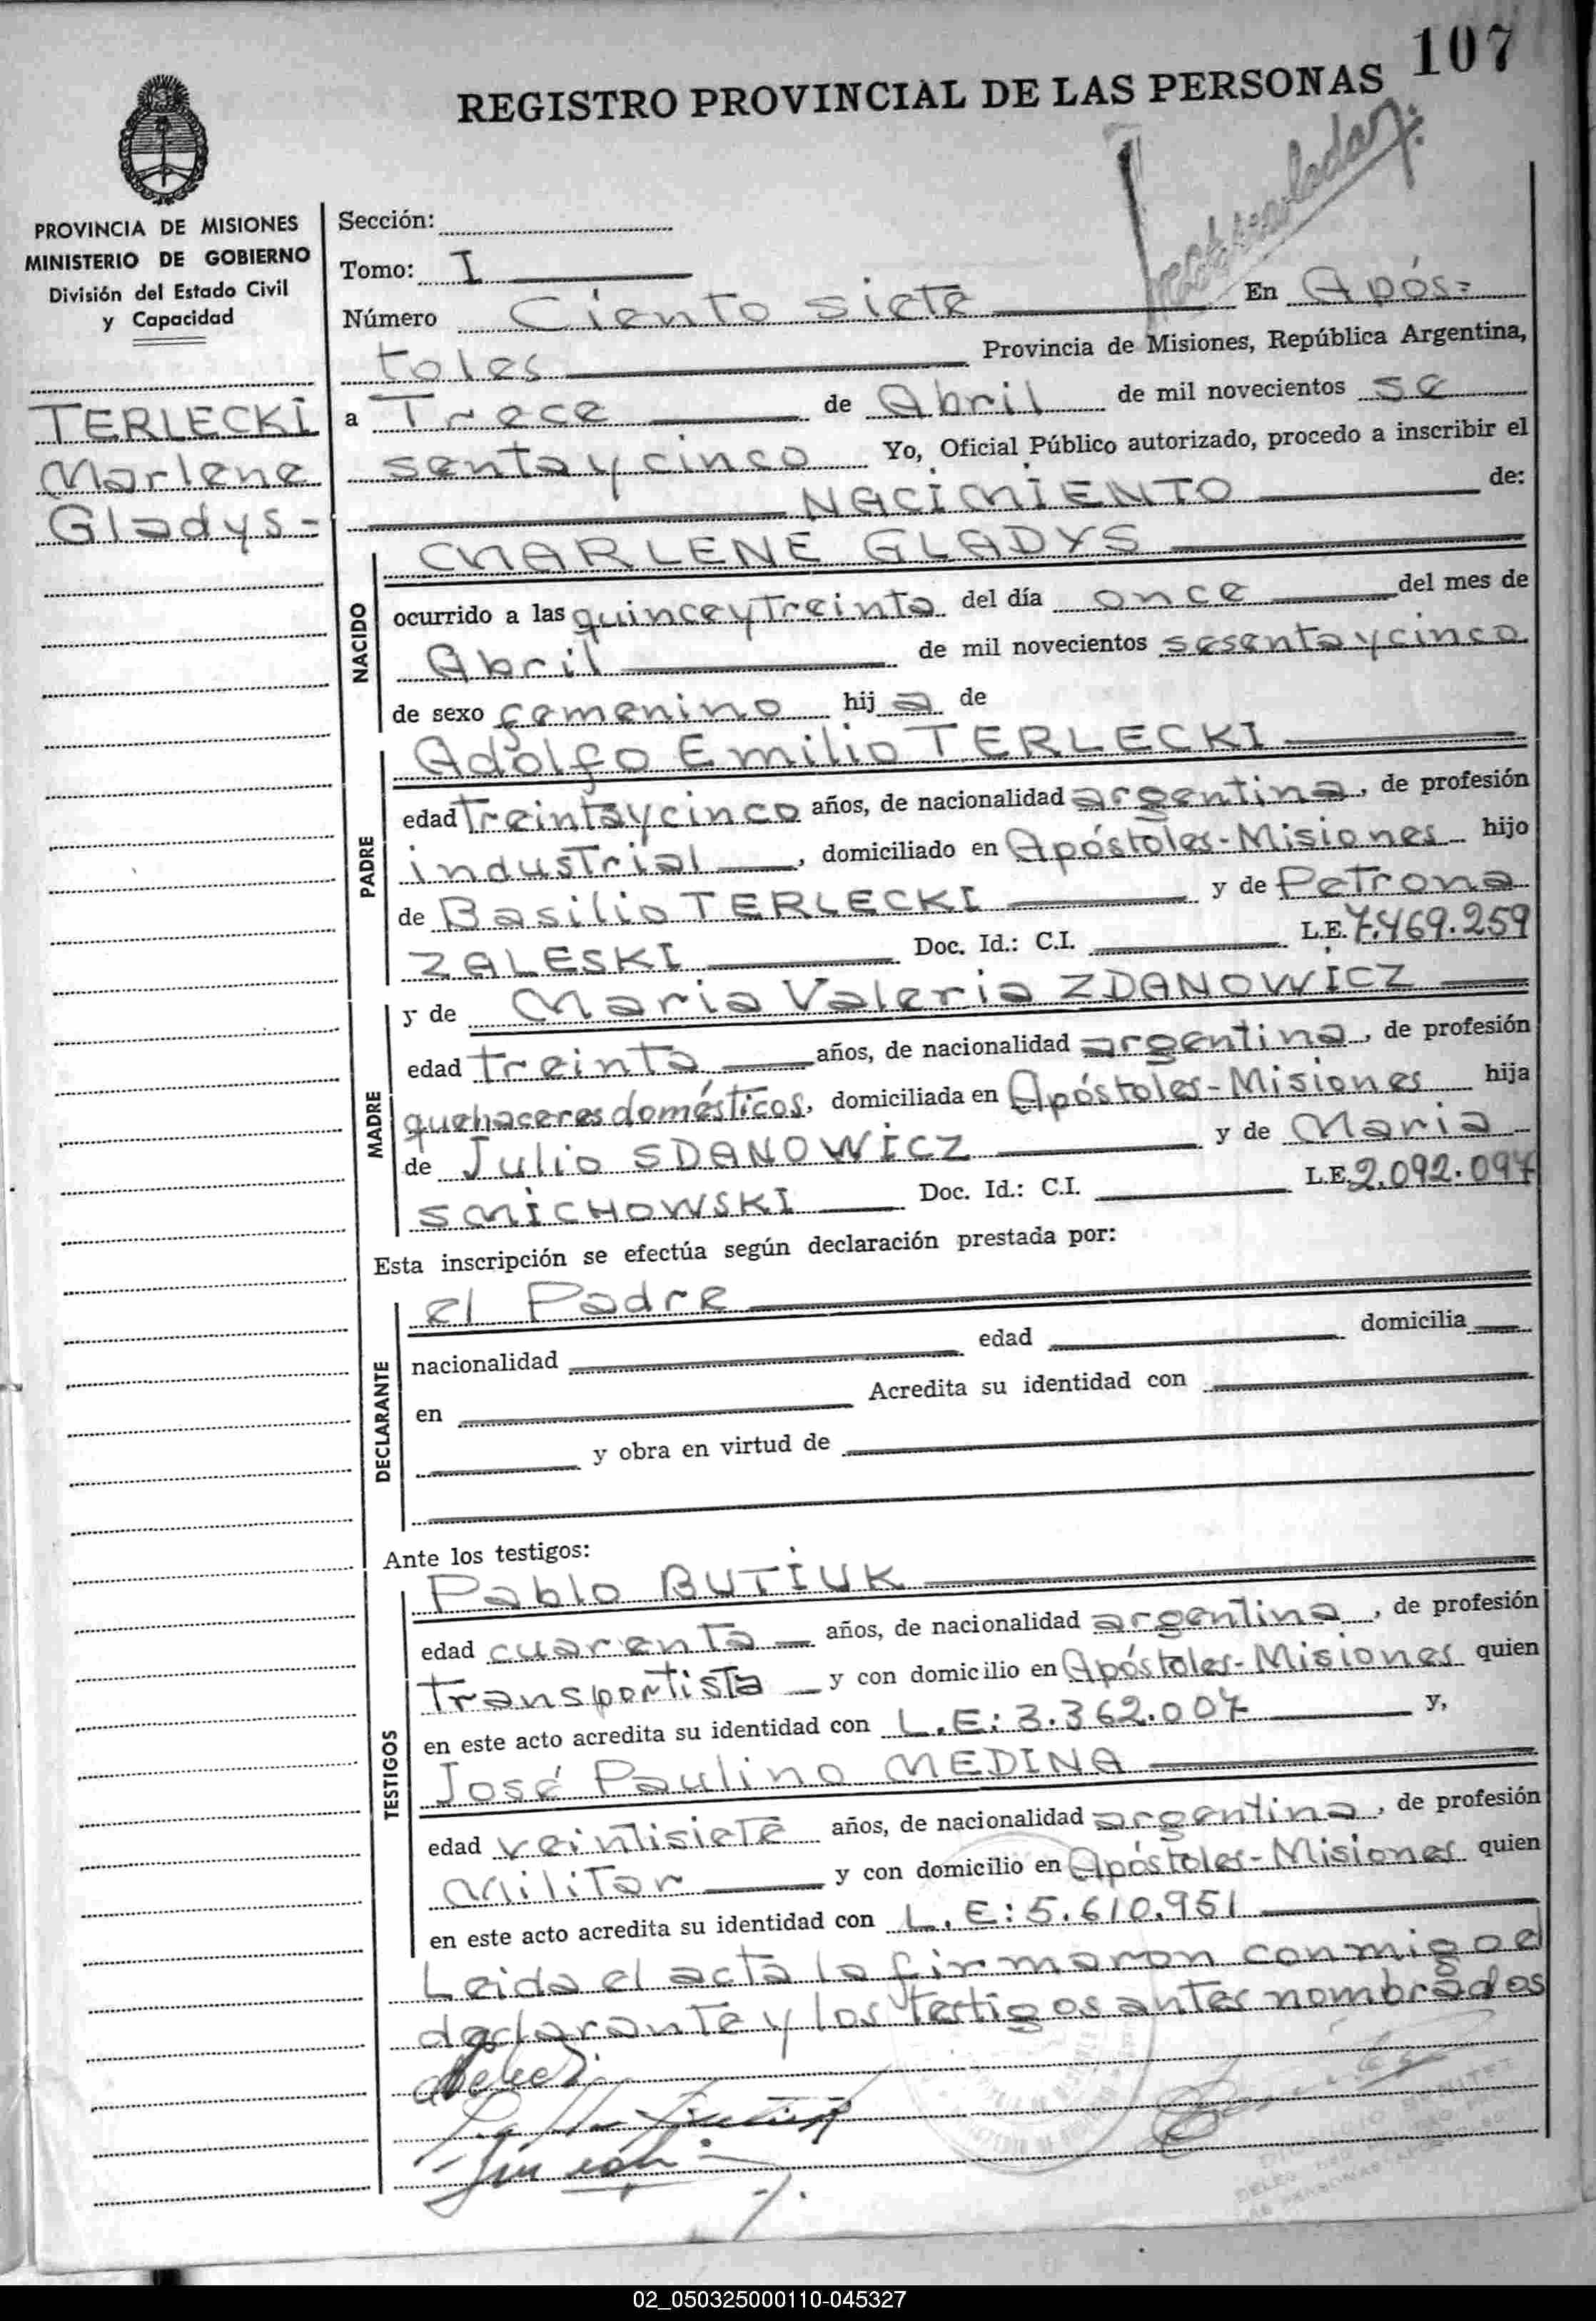 107
REGISTRO PROVINCIAL DE LAS PERSONAS
PROVINCIA DE MISIONES
MINISTERIO DE GOBIERNO
División del Estado Civil
y Capacidad
TERLECKI
Marlene
Gladys=
Sección:
Tomo: I
Número Ciento siete En Após=
toles Provincia de Misiones, República Argentina,
a Trece de Abril de mil novecientos se
senta y cinco Yo, Oficial Público autorizado, procedo a inscribir el
NACIMIENTO de:
NACIDO
MARLENE GLADYS
ocurrido a las quince y Treinta del día once del mes de
Abril de mil novecientos sesenta y cinco
de sexo femenino hij a de
PADRE
Adolfo Emilio TERLECKI
edad Treinta y cinco años, de nacionalidad argentina, de profesión
industrial, domiciliado en Apóstoles-Misiones hijo
de Basilio TERLECKI y de Petrona
ZALESKI Doc. Id.: C.I. L.E. 7.469.259
MADRE
y de Maria Valeria ZDANOWICZ
edad treinta años, de nacionalidad argentina, de profesión
quehaceres domésticos, domiciliada en Apóstoles-Misiones hija
de Julio SDANOWICZ y de Maria
SMICHOWSKI Doc. Id.: C.I. L.E. 2.092.097
Esta inscripción se efectúa según declaración prestada por:
DECLARANTE
el Padre
nacionalidad edad domicilia
en Acredita su identidad con
y obra en virtud de
Ante los testigos:
TESTIGOS
Pablo BUTIUK
edad cuarenta años, de nacionalidad argentina, de profesión
transportista y con domicilio en Apóstoles-Misiones quien
en este acto acredita su identidad con L.E: 3.362.007 y,
José Paulino MEDINA
edad veintisiete años, de nacionalidad argentina, de profesión
militar y con domicilio en Apóstoles-Misiones quien
en este acto acredita su identidad con L.E: 5.610.951
Leida el acta la firmaron conmigo el
declarante y los testigos antes nombrados
02_050325000110-045327